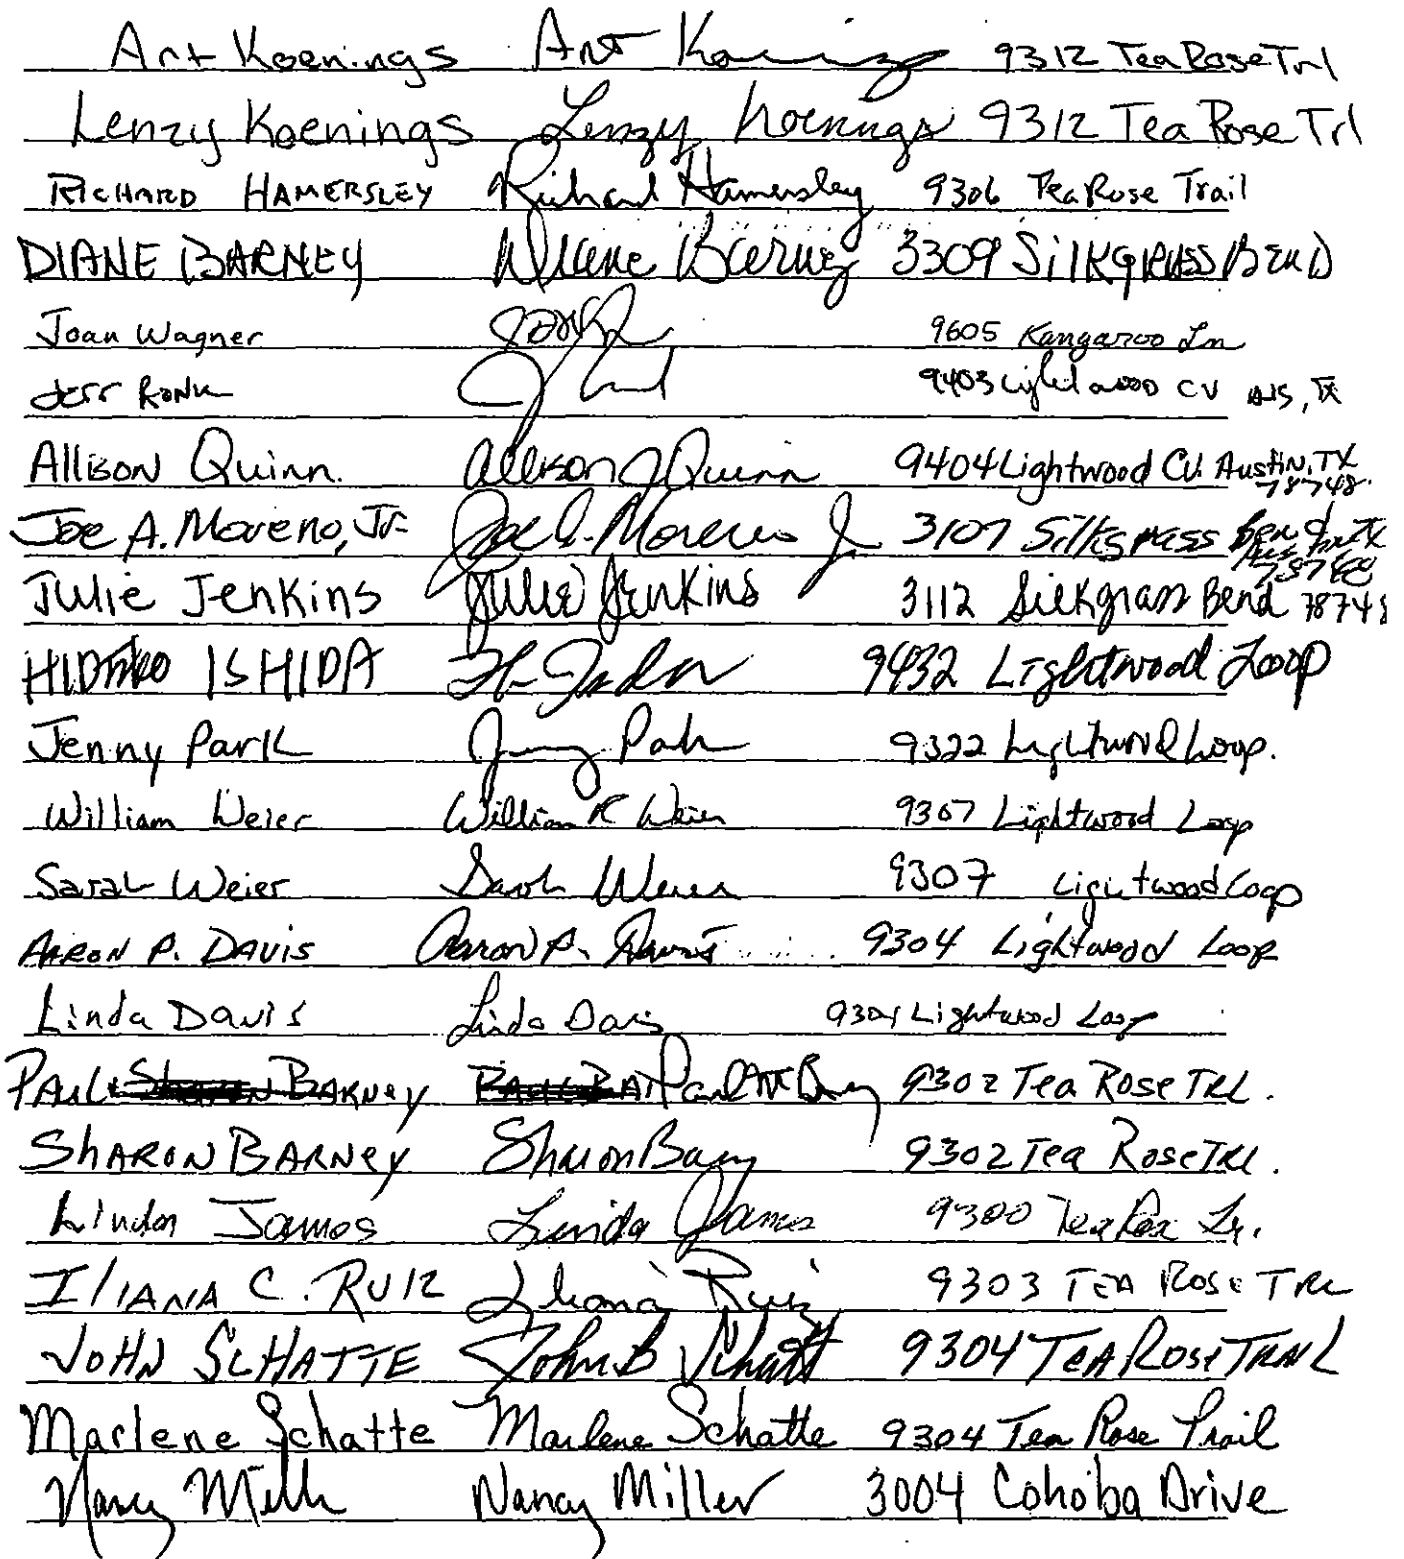 Art Koenings Art Koenings 9312 Tea Rose Trl
Lenzy Koenings Lenzy Koenings 9312 Tea Rose Trl
RICHARD HAMERSLEY Richard Hamersley 9306 Tea Rose Trail
DIANE BARNEY Diane Barney 3309 SilkgRASS BEND
Joan Wagner 9605 Kangaroo Ln
Jeff RONK 9403 Lightwood CV AUS, TX
Allison Quinn. Allison J Quinn 9404 Lightwood CV. Austin, TX
78748.
Joe A. Moreno, Jr. Joe A. Moreno Jr 3107 Silkgrass Bend
Austin TX
78748
Julie Jenkins Julie Jenkins 3112 Silkgrass Bend 78748
ISHIDA 9432 Lightwood Loop
Jenny Park Jenny Park 9322 Lightwood Loop.
William Weier William R Weier 9307 Lightwood Loop
Sarah Weier Sarah Weier 9307 Lightwood Loop
AARON P. DAVIS Aaron P. Davis 9304 Lightwood Loop
Linda Davis Linda Davis 9304 Lightwood Loop
PAUL BARNEY Paul M Barney 9302 Tea Rose TRL.
SHARON BARNEY Sharon Barney 9302 Tea Rose TRL.
Linda James Linda James 9300 Tea Rose Tr.
ILIANA C. RUIZ Iliana Ruiz 9303 TEA ROSE TRL
JOHN SCHATTE John B Schatte 9304 TEA ROSE TRAIL
Marlene Schatte Marlene Schatte 9304 Tea Rose Trail
Nancy Miller Nancy Miller 3004 Cohoba Drive